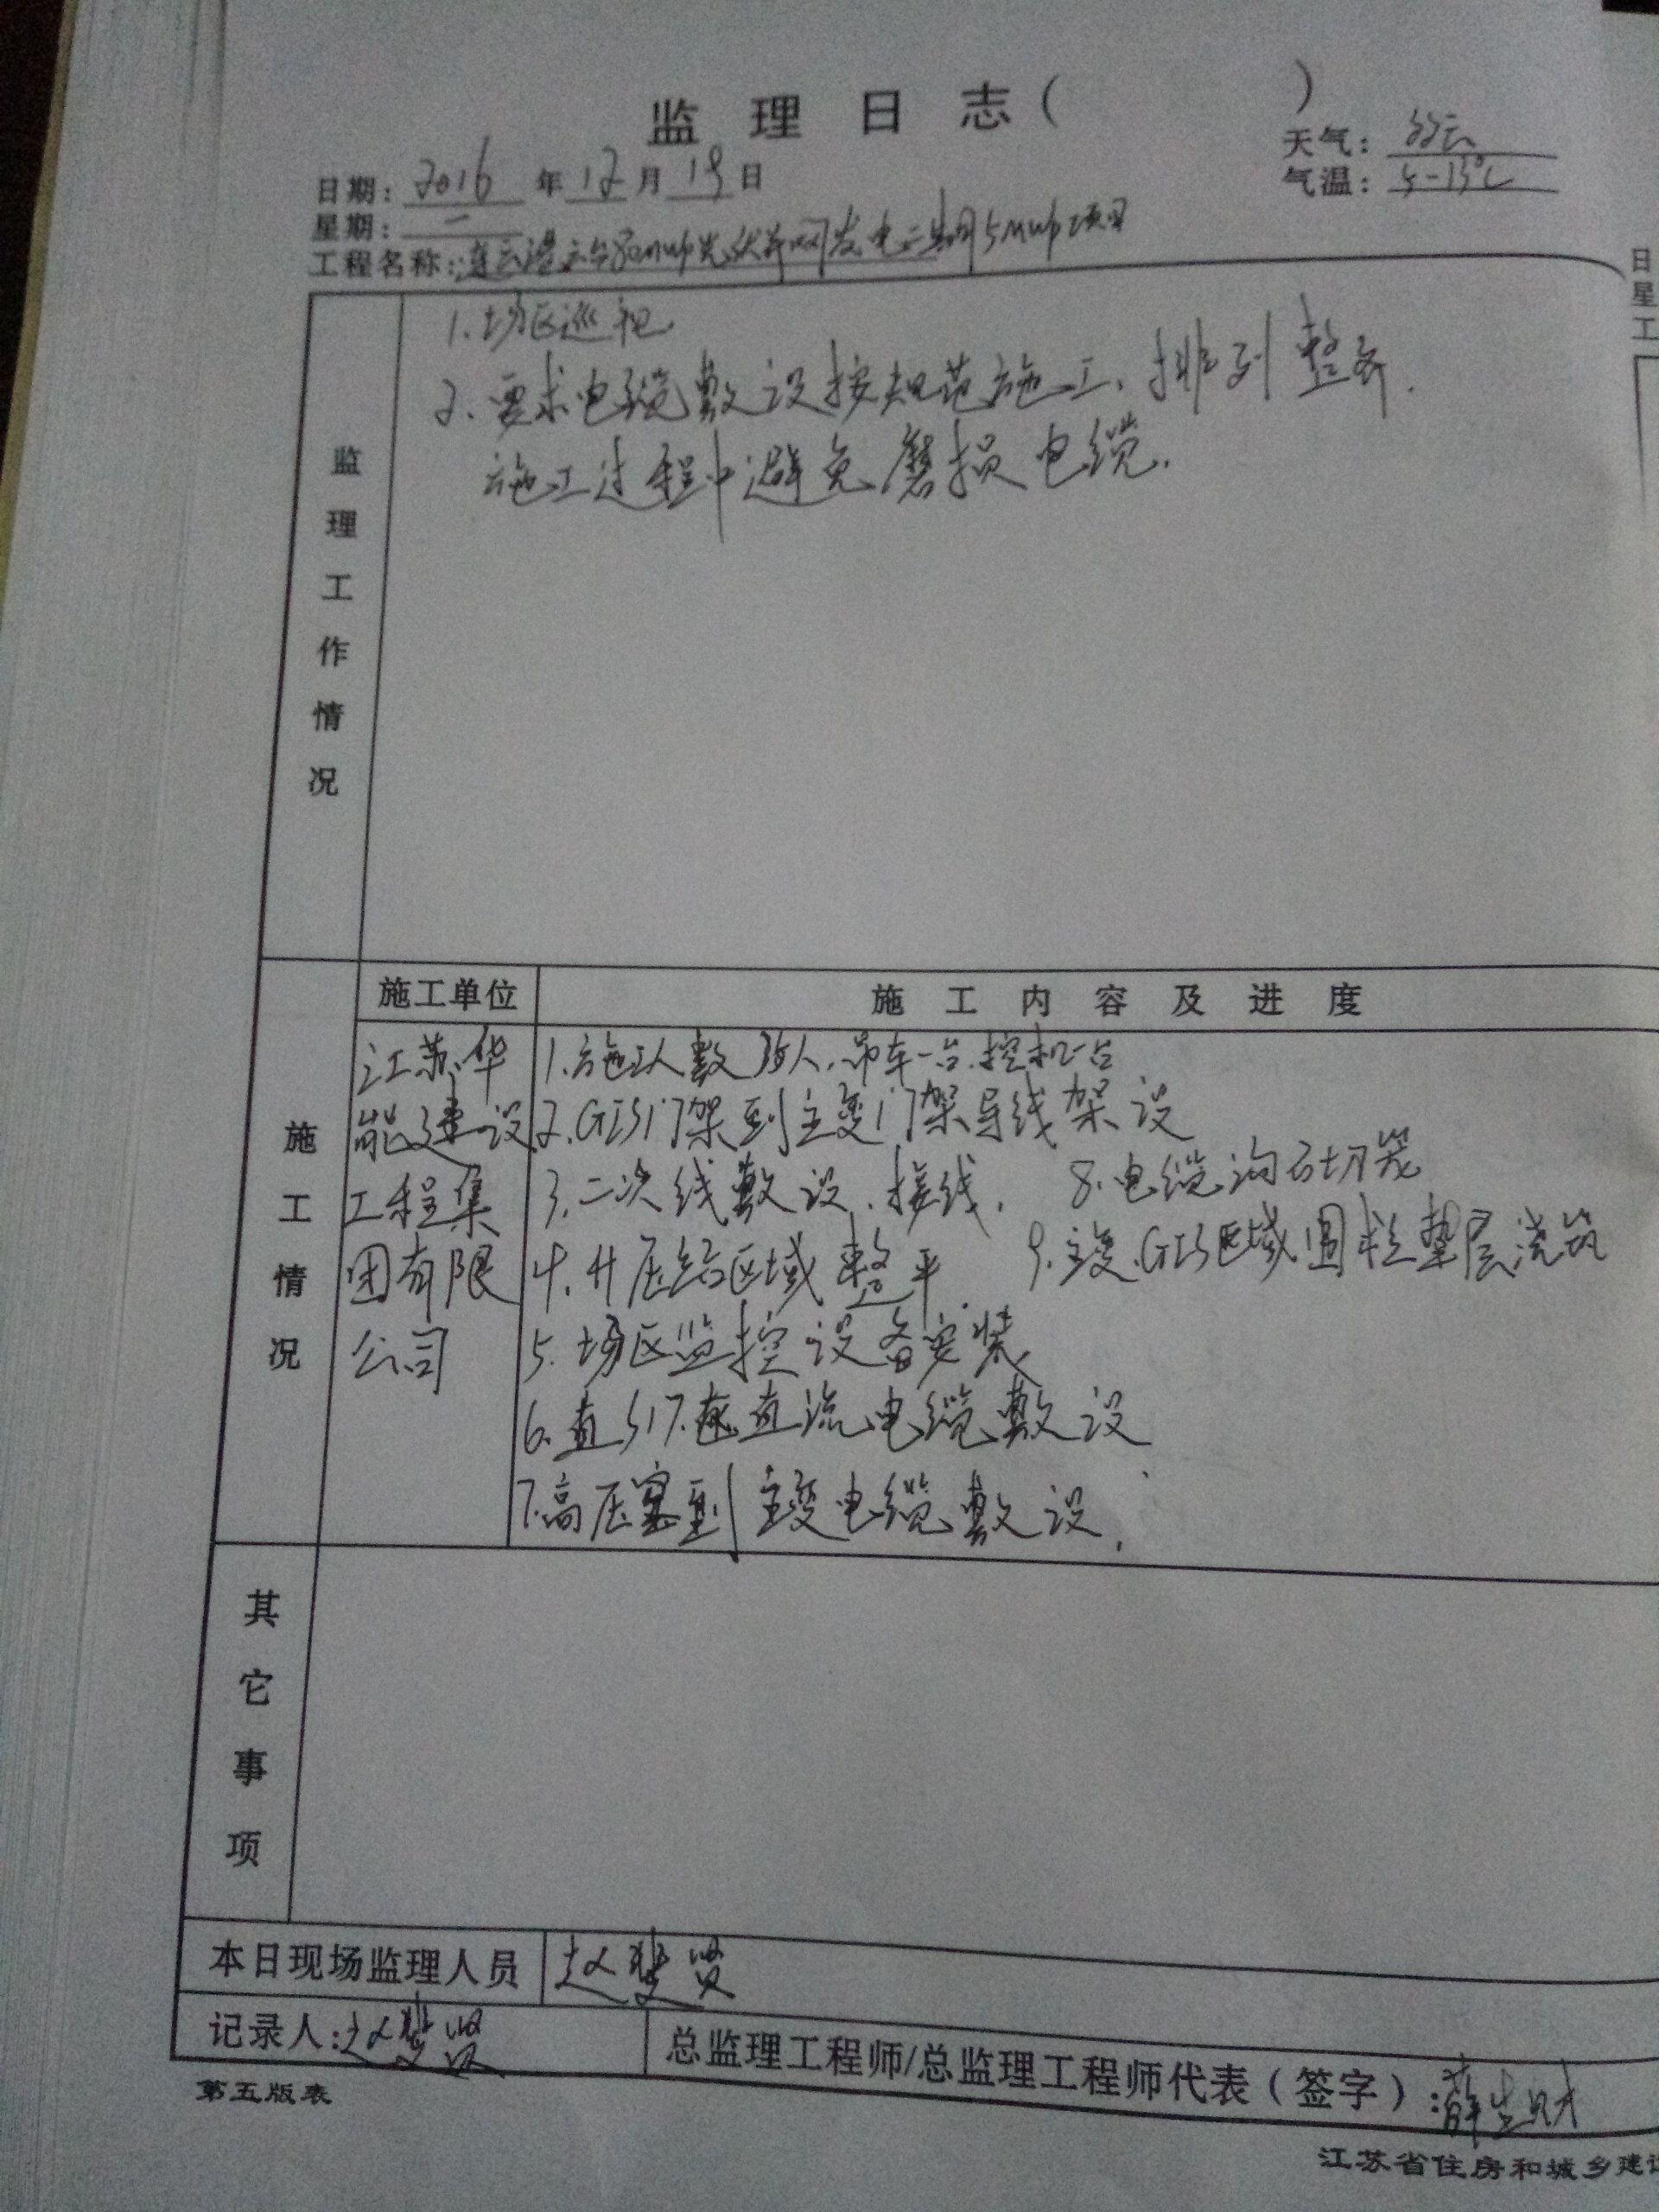 监 理 日 志 ( )
天气: 多云
日期: 2016 年 12 月 19 日
气温: 5-13℃
星期: 一
工程名称: 连云港云台80MWp光伏并网发电二期5MWp项目
监理工作情况
1. 场区巡视
2. 要求电缆敷设按规范施工、排列整齐.
施工过程中避免磨损电缆.
施工单位
施工内容及进度
施工情况
江苏华
能建设
工程集
团有限
公司
1. 施工人数35人.吊车一台.挖机一台
2. GIS门架到主变门架导线架设
3. 二次线敷设.接线.
4. 升压站区域整平.
5. 场区监控设备安装
6. 直流电缆敷设
7. 高压室到主变电缆敷设.
8. 电缆沟砌筑
9. 主变.GIS区域围栏垫层浇筑
其它事项
本日现场监理人员 赵 贤
记录人: 赵 贤
总监理工程师/总监理工程师代表(签字): 薛生财
第五版表
江苏省住房和城乡建设
日
星
工